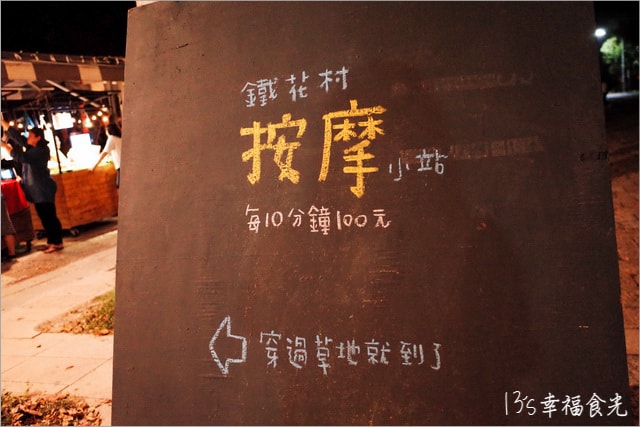 鐵花村
按摩小站
每10分鐘100元
穿過草地就到了
13's幸福食光